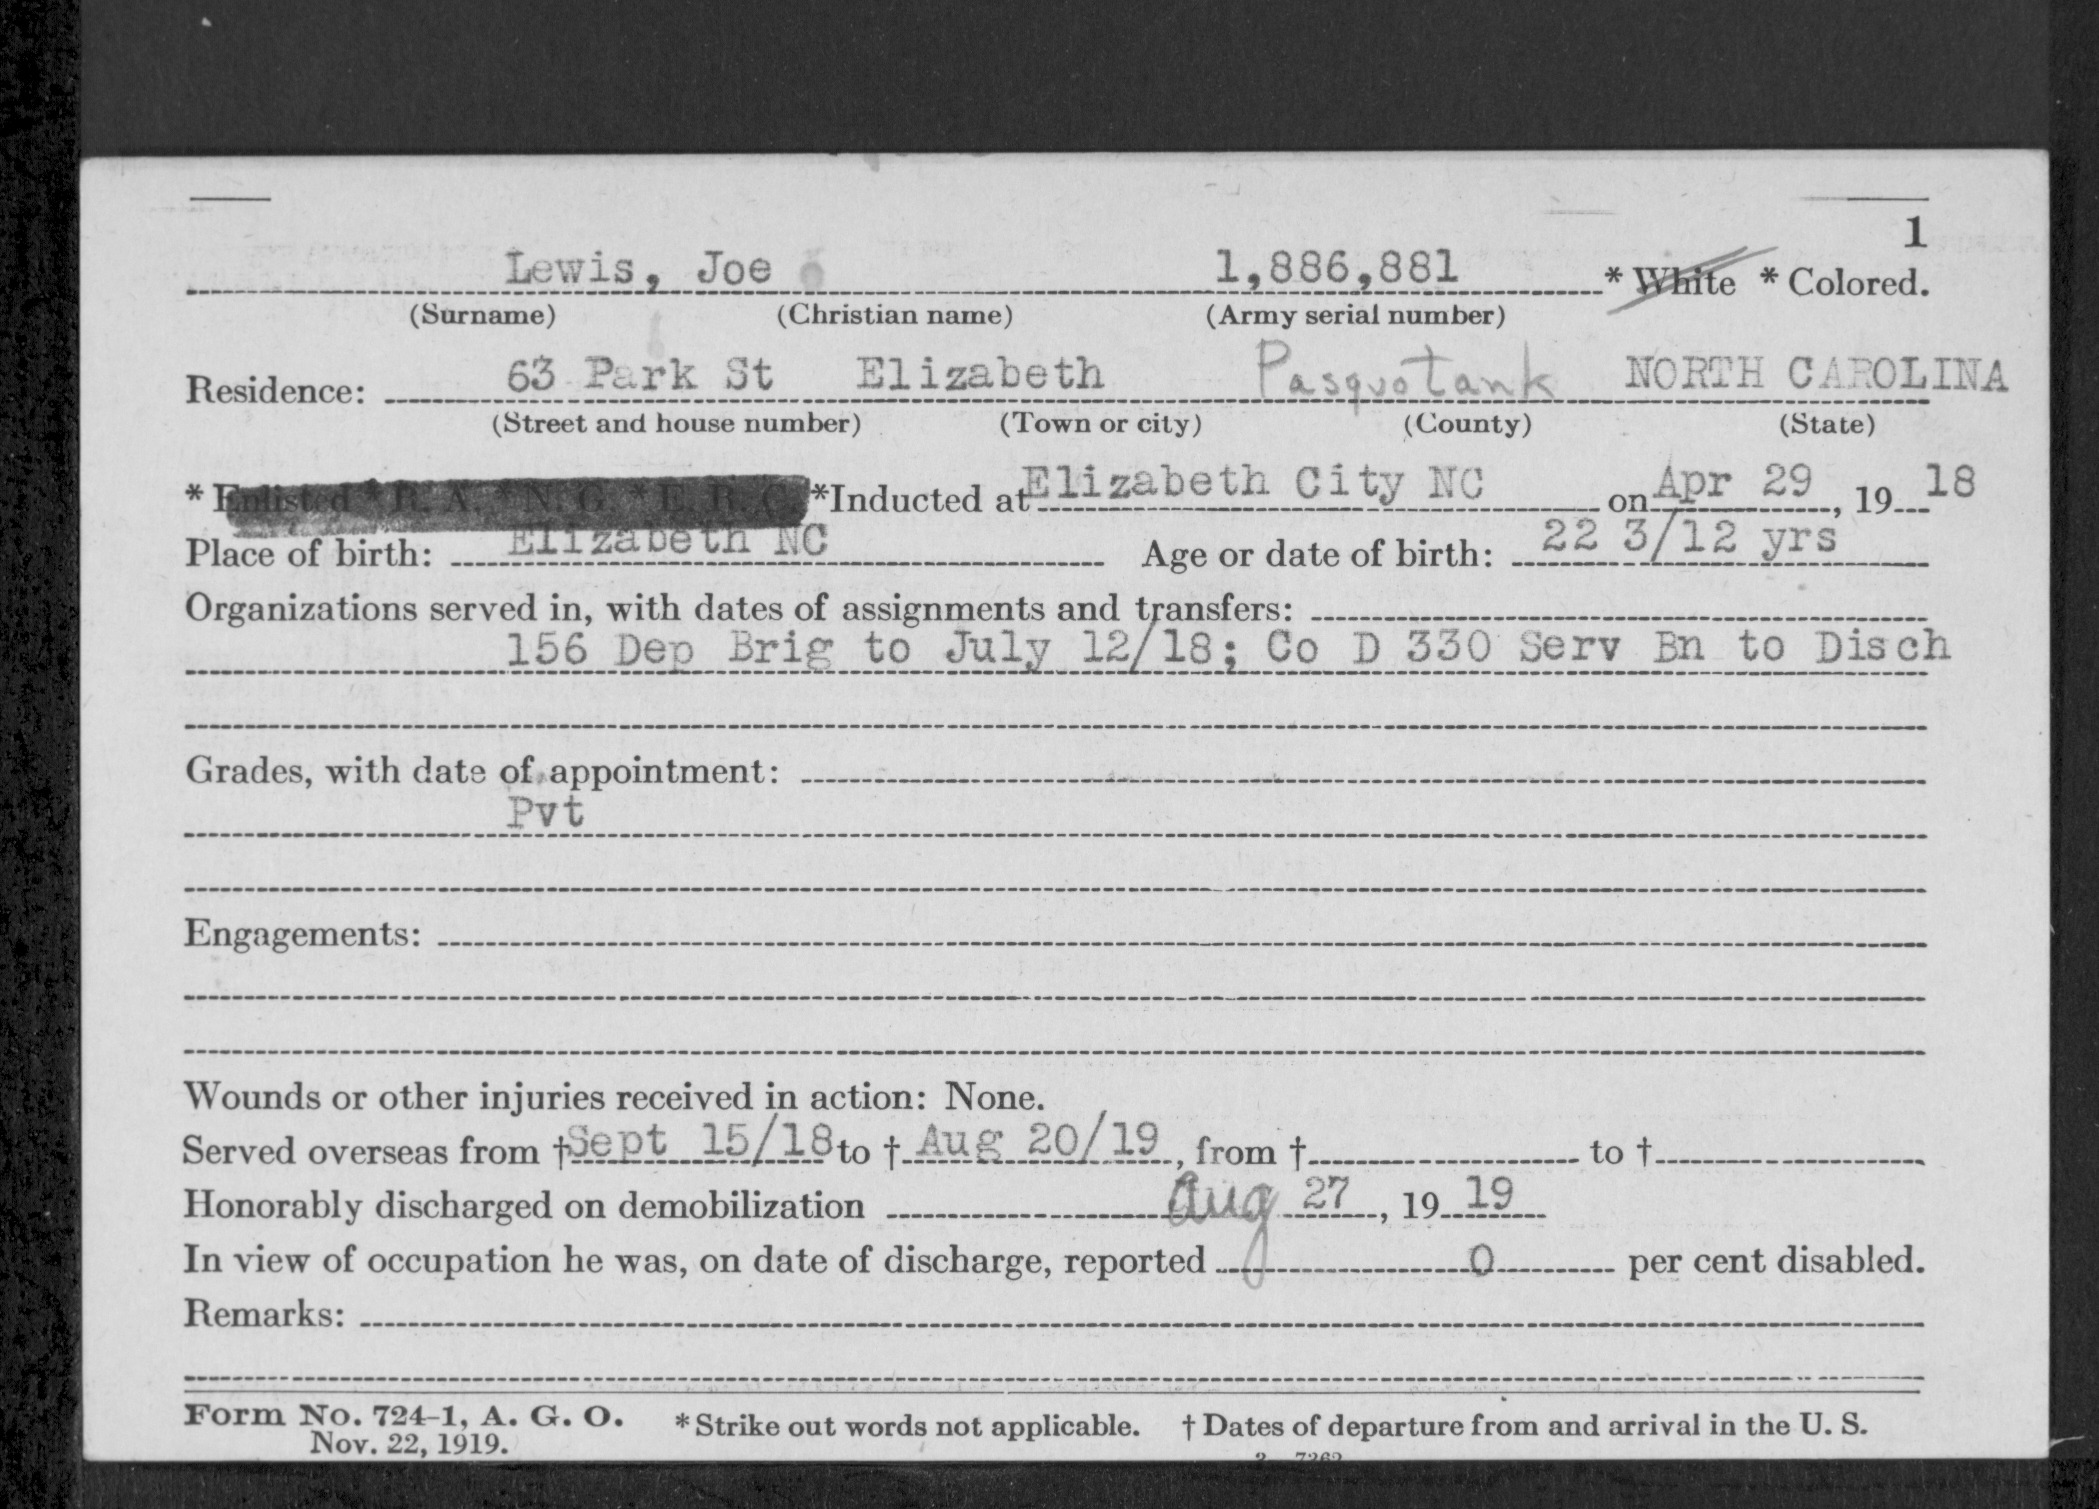 1
Lewis, Joe 1,886,881 * White * Colored.
(Surname) (Christian name) (Army serial number)
Residence: 63 Park St Elizabeth Pasquotank NORTH CAROLINA
(Street and house number) (Town or city) (County) (State)
* Enlisted * R. A. * N. G. * E. R. C. *Inducted at Elizabeth City NC on Apr 29, 19 18
Place of birth: Elizabeth NC Age or date of birth: 22 3/12 yrs
Organizations served in, with dates of assignments and transfers:
156 Dep Brig to July 12/18; Co D 330 Serv Bn to Disch
Grades, with date of appointment:
Pvt
Engagements:
Wounds or other injuries received in action: None.
Served overseas from † Sept 15/18 to † Aug 20/19, from † to †
Honorably discharged on demobilization Aug 27, 19 19
In view of occupation he was, on date of discharge, reported 0 per cent disabled.
Remarks:
Form No. 724-1, A. G. O. * Strike out words not applicable. † Dates of departure from and arrival in the U. S.
Nov. 22, 1919.